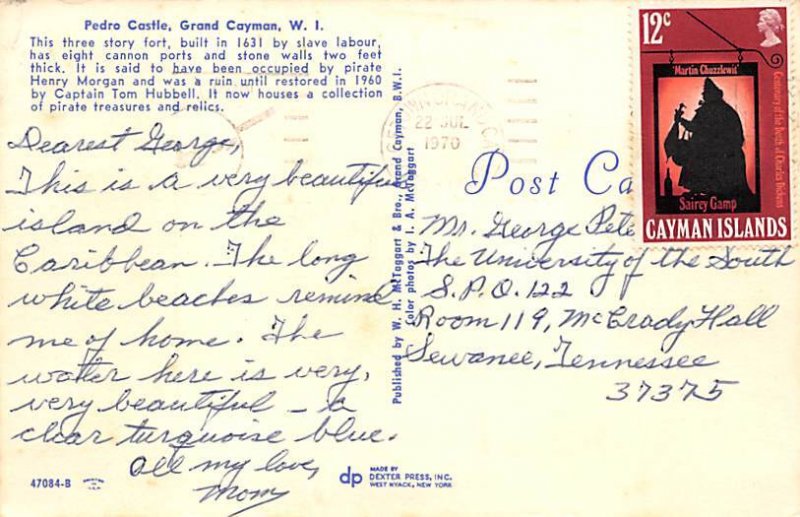 Pedro Castle, Grand Cayman, W. I.
This three story fort, built in 1631 by slave labour,
has eight cannon ports and stone walls two feet
thick. It is said to have been occupied by pirate
Henry Morgan and was a ruin until restored in 1960
by Captain Tom Hubbell. It now houses a collection
of pirate treasures and relics.
Dearest George,
This is a very beautiful
island on the
Caribbean. The long
white beaches remind
me of home. The
water here is very,
very beautiful – a
clear turquoise blue.
All my love,
Mom
47084-B
Published by W. H. McTaggart & Bro., Grand Cayman, B.W.I.
Color photos by I. A. McTaggart
dp
MADE BY
DEXTER PRESS, INC.
WEST NYACK, NEW YORK
22 JUL
1970
Post Ca
12c
'Martin Chuzzlewit'
Centenary of the Death of Charles Dickens
Sairey Gamp
CAYMAN ISLANDS
Mr. George Pete
The University of the South
S.P.O. 122
Room 119, McCrady Hall
Sewanee, Tennessee
37375